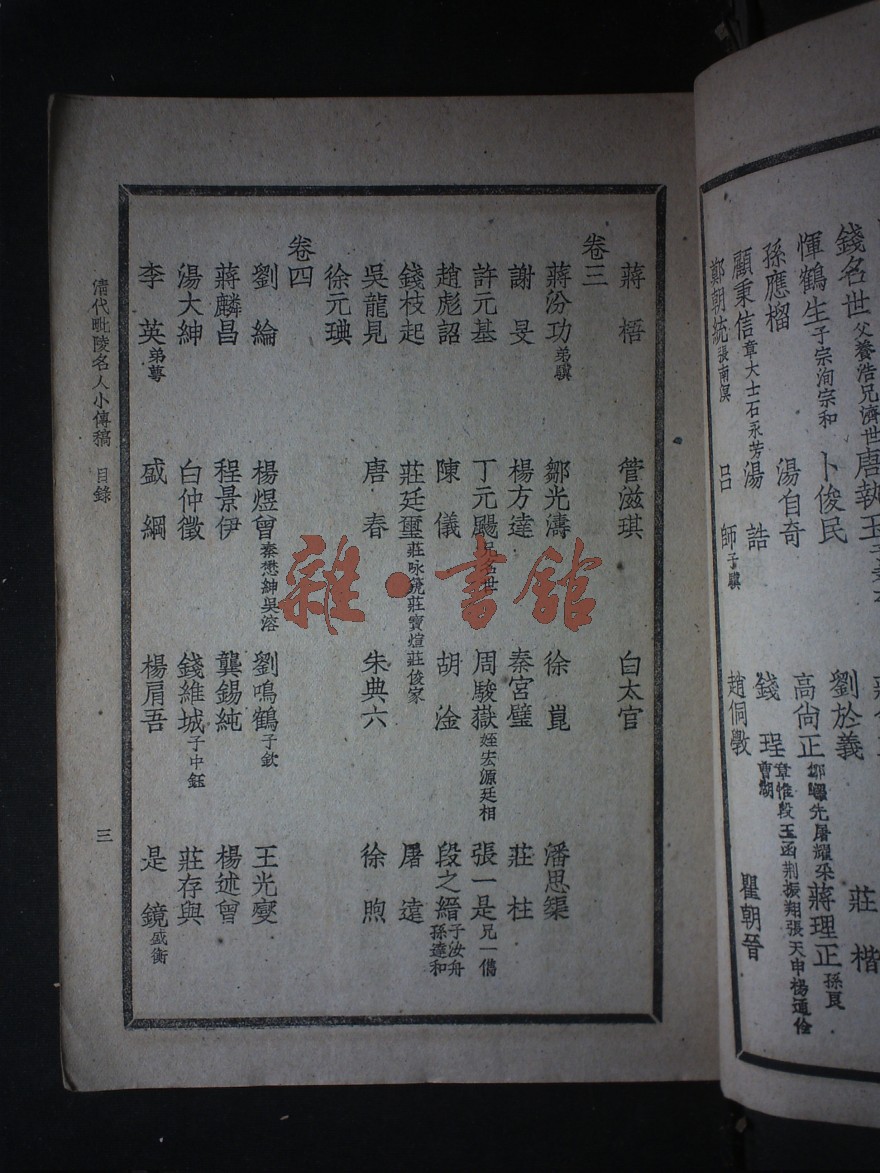 錢名世父養浩兄濟世 唐執玉
惲鶴生子宗洵宗和 卜俊民 劉於義 莊楷
孫應榴 湯自奇 高尚正 蔣理正孫良
顧秉信章大士石永芳 湯誥 錢珵
鄭朝統張南溟 呂師子驥 趙侗斆 瞿朝晉
蔣梧 管滋琪 白太官
卷三
蔣汾功弟驥 鄒光濤 徐崑 潘思榘
謝旻 楊方達 秦宮璧 莊柱
許元基 丁元颺 周駿嶽姪宏源廷相 張一是兄一儁
趙彪詔 陳儀 胡淦 段之縉子汝舟孫達和
錢枝起 莊廷璽莊咏莊寶煊莊俊家 屠逵
吳龍見 唐春 朱典六 徐煦
徐元琠
卷四
劉綸 楊煜曾秦懋紳吳溶 劉鳴鶴子欽 王光燮
蔣麟昌 程景伊 龔錫純 楊述曾
湯大紳 白仲徵 錢維城子中鈺 莊存與
李英弟蕚 盛綱 楊肩吾 是鏡盛衡
清代毗陵名人小傳稿 目錄 三
雜·書館